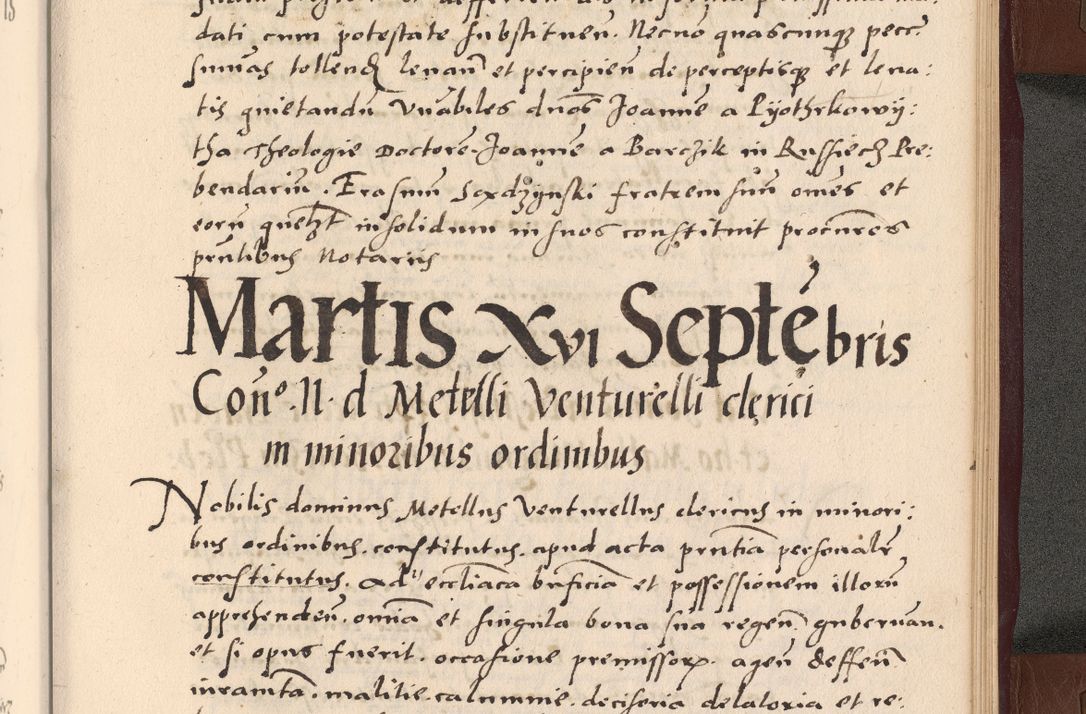 dati cum potestate substituen̄. Necno quascunq̲ pecc̄
sum̄as tollend̄ leuan̄ et percipien̄ de perceptisq̲ et leua:
tis quietandū Vn̄abiles dn̄os Joannē a Pyothrkowy:
tha Theologie Doctorē Joannē a Barczik in Russiecz Pre:
bendariū. Erasmū Sxdzynski fratrem suū om̄es et
eorū quel̄zt insolidum in suos constituit procūres
pn̄tibus Notariis
Martis Xvi Septēbris
Con̄º. N. d Metelli Venturelli clerici
in minoribus ordinibus
Nobilis dominus Metellus Venturellus clericus in minori:
bus ordinibus. constitutus. apud acta pn̄tia personalr̄
constitutus. ad eccl̄iāca bn̄ficia et possessionem illorū
apprehenden̄. om̄ia et singula bona sua regen̄. gubernan̄.
et si opus fuerit. occasione premissorꝝ. agen̄ deffen̄
iuramtā. malitie. calumnie. deciforia delatoria et re: